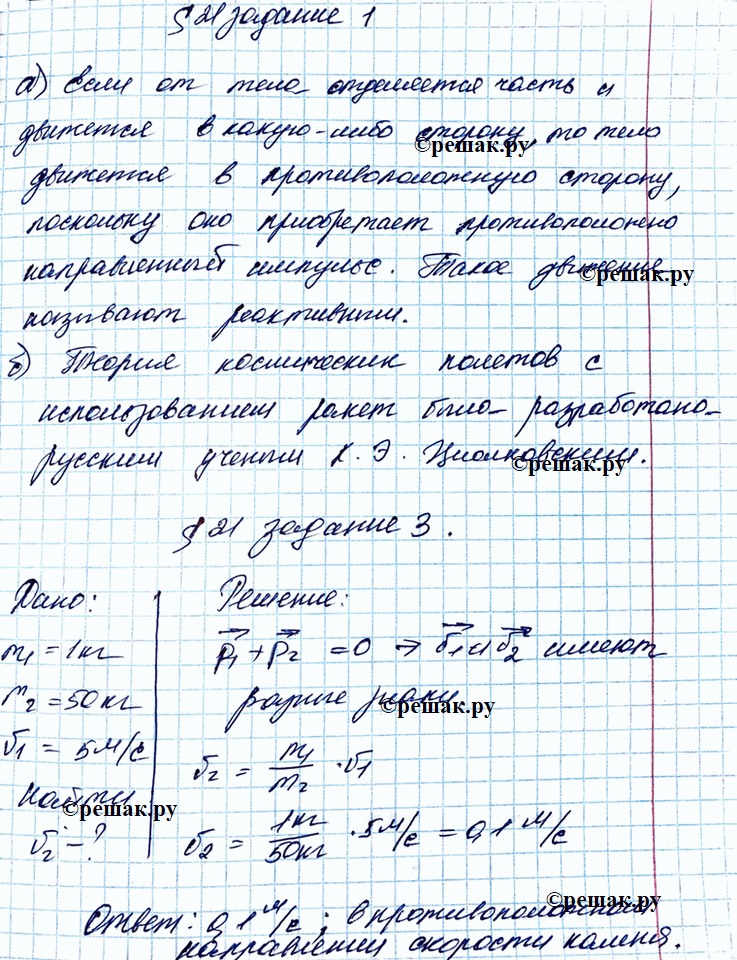 § 21 задание 1
а) Если от тела отделяется часть и
движется в какую-либо сторону, то тело
©решак.ру
движется в противоположную сторону,
поскольку оно приобретает противоположено
направленный импульс. Такое движение
©решак.ру
называют реактивным.
б) Теория космических полетов с
использованием ракет была разработана
русским ученым К. Э. Циолковским.
©решак.ру
§ 21 задание 3.
Дано: Решение:
m₁ = 1кг p₁ + p₂ = 0 → v₁ и v₂ имеют
m₂ = 50кг разные знаки
©решак.ру
v₁ = 5м/с v₂ = m₁/m₂ · v₁
Найти
©решак.ру
v₂ - ? v₂ = 1кг/50кг · 5м/с = 0,1 м/с
©решак.ру
Ответ: 0,1 м/с ; в противоположном
направлении скорости камня.